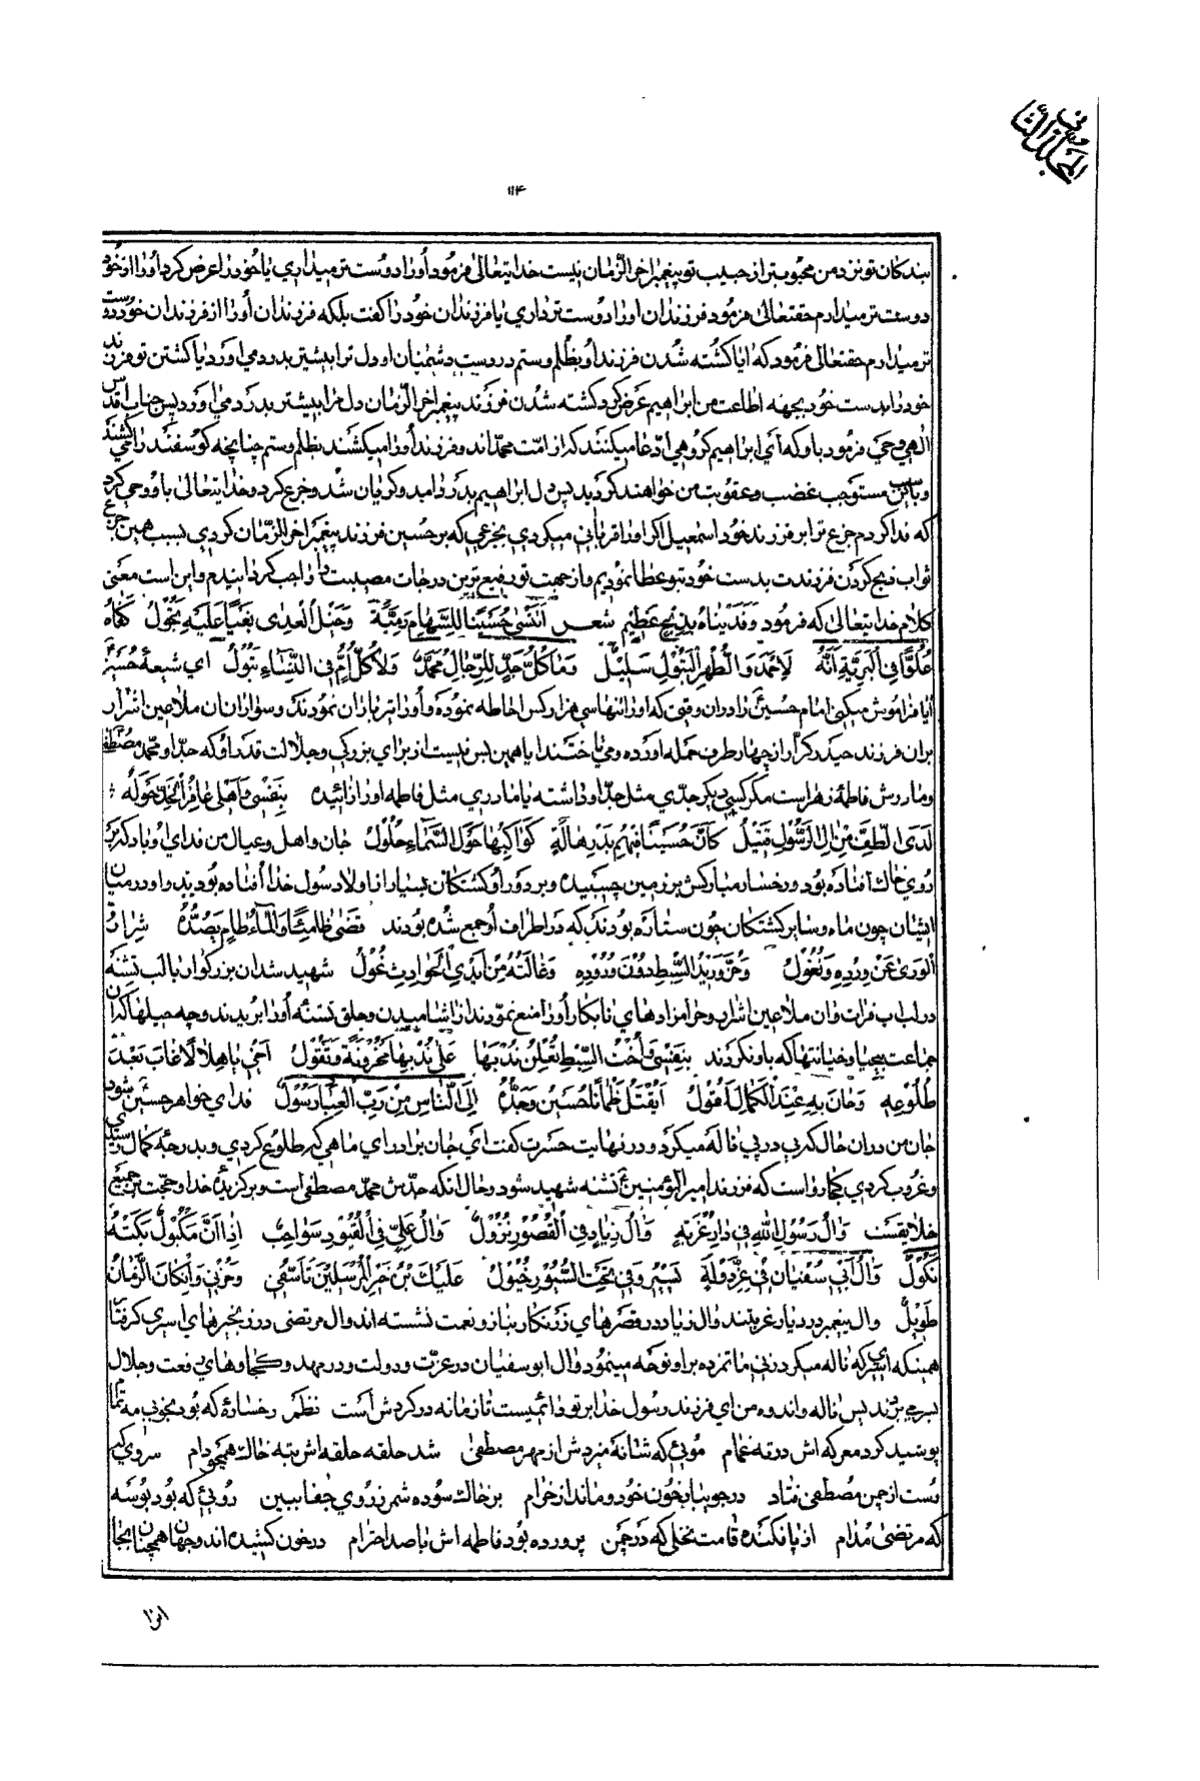 المجلد الثانی
۱۱۴
بندکان تو نزد من محبوبتر از حبیب تو پیغمبر اخر الزمان نیست خدایتعالی فرمود او را دوست تر میداری یا خود را عرض کرد او را از خود
دوست تر میدارم حقتعالی فرمود فرزندان او را دوست تر داری یا فرزندان خود را کفت بلکه فرزندان او را از فرزندان خود دوست
تر میدارم حقتعالی فرمود که ایا کشته شدن فرزند او بظلم و ستم در دست دشمنان او دل ترا بیشتر بدرد می اورد یا کشتن تو فرزند
خود را بدست خود بجهة اطاعت من ابراهیم عرض کرد کشته شدن فرزند پیغمبر اخر الزمان دل مرا بیشتر بدرد می اورد پس جناب اقدس
الهی وحی فرمود باو که ای ابراهیم کروهی ادعا میکنند که از امت محمد اند و فرزند او را میکشند بظلم و ستم چنانچه کوسفند را میکشند
و باین سبب مستوجب غضب و عقوبت من خواهند کردید پس دل ابراهیم بدرد امد و کریان شد و جزع کرد و خدایتعالی باو وحی کرد
که فدا کردم جزع ترا بر فرزند خود اسمعیل اکر او را قربانی میکردی بجزعی که بر حسین فرزند پیغمبر اخر الزمان کردی بسبب همین جزع
ثواب ذبح کردن فرزندت بدست خود بتو عطا نمودیم و از جهت تو رفیع ترین درجات مصیبت را واجب کردانیدم و این است معنی
کلام خدایتعالی که فرمود وفدیناه بذبح عظیم شعر اتنسی حسینا للسهام رمیة وخیل العدی بغیا علیه تجول کماه
علوا فی البریة انه لاحمد والطهر البتول سلیل وما کل جد للرجال محمد ولا کل ام فی النساء بتول ای شیعه حسین
ایا فراموش میکنی امام حسین را در ان وقتی که او را تنها سی هزار کس احاطه نموده و او را تیر باران نمودند و سواران ان ملاعین اشرار
بران فرزند حیدر کرار از چهار طرف حمله اورده و می تاختند ایا همین بس نیست از برای بزرکی و جلالت قدر او که جد او محمد مصطفی
و مادرش فاطمه زهرا است مکر کسی دیکر جدی مثل جد او داشته یا مادری مثل فاطمه او را زائیده بنفسی واهلی عافر الخد حوله
لدی الطف من ال الرسول قتیل کان حسینا فیهم بدر هالة کواکبها حول السماء حلول جان و اهل و عیال من فدای او باد که بر
روی خاک افتاده بود و رخسار مبارکش بر زمین چسبیده و بر دور او کشتکان بسیار از اولاد رسول خدا افتاده بودند و او در میان
ایشان چون ماه و سایر کشتکان چون ستاره بودند که در اطراف او جمع شده بودند قضی ظامئا والماء طام یصده شرار
الوری عن ورده ونغول وحز ورید السبط دون وروده وغالته من ایدی الحوادث غول شهید شد ان بزرکوار با لب تشنه
در لب اب فرات و ان ملاعین اشرار و حرامزادهای نابکار او را منع نمودند از اشامیدن و حلق تشنه او را بریدند و چه حیلها که ان
جماعت بیحیا و خیانتها که باو نکردند بنفسی اخت السبط تعلن ندبها علی ندبها محزونة وتقول اخی یا هلالا غاب بعد
طلوعه وحان به عند الکمال افول ایقتل ظمانا حسین وجده الی الناس من رب العباد رسول فدای خواهر حسین شود
جان من در ان حال که پی در پی ناله میکرد و در نهایت حسرت کفت ای جان برادر ای ماهی که طلوع کردی و بدرجه کمال رسیدی
و غروب کردی کجا روا است که فرزند امیر المؤمنین تشنه شهید شود و حال انکه جدش محمد مصطفی است و برکزیده خدا و حجت بر جمیع
خلایقست وال رسول الله فی دار غربة وال زیاد فی القصور نزول وال علی فی القیود سواحب اذا ان مکبول بکته
نکول وال ابی سفیان فی عز دولة تسیر وفی تحت الستور خیول علیک بن خیر المرسلین تاسفی وحزنی وان کان الزمان
طویل وال پیغمبر در دیار غربتند وال زیاد در قصرهای زرنکار بناز و نعمت نشسته اند وال مرتضی در زنجیرهای اسری کرفتار
همینکه اسیری که ناله میکرد زنی ماتم زده بر او نوحه مینمود وال ابو سفیان در عزت و دولت و در مهد و کجاوهای رفعت و جلال
بسر می برند پس ناله و اندوه من ای فرزند رسول خدا بر تو دائمیست تا زمانه در کردش است نظم رخسارهٔ که بود بخوبی مه تمام
پوشید کرد معرکه اش در ته غمام موئی که شانه میزدش از مهر مصطفی شد حلقه حلقه اش بته خاک همچو دام سروی که
رست از چمن مصطفی فتاد در جویبار خون خود و ماند از خرام بر خاک سوده شمر ز روی جفا ببین روئی که بود بوسه
که مرتضی مدام از پا فکنده قامت نخلی که در چمن پرورده بود فاطمه اش با صد احترام در خون کشیده اند وجهان همچنان بجا